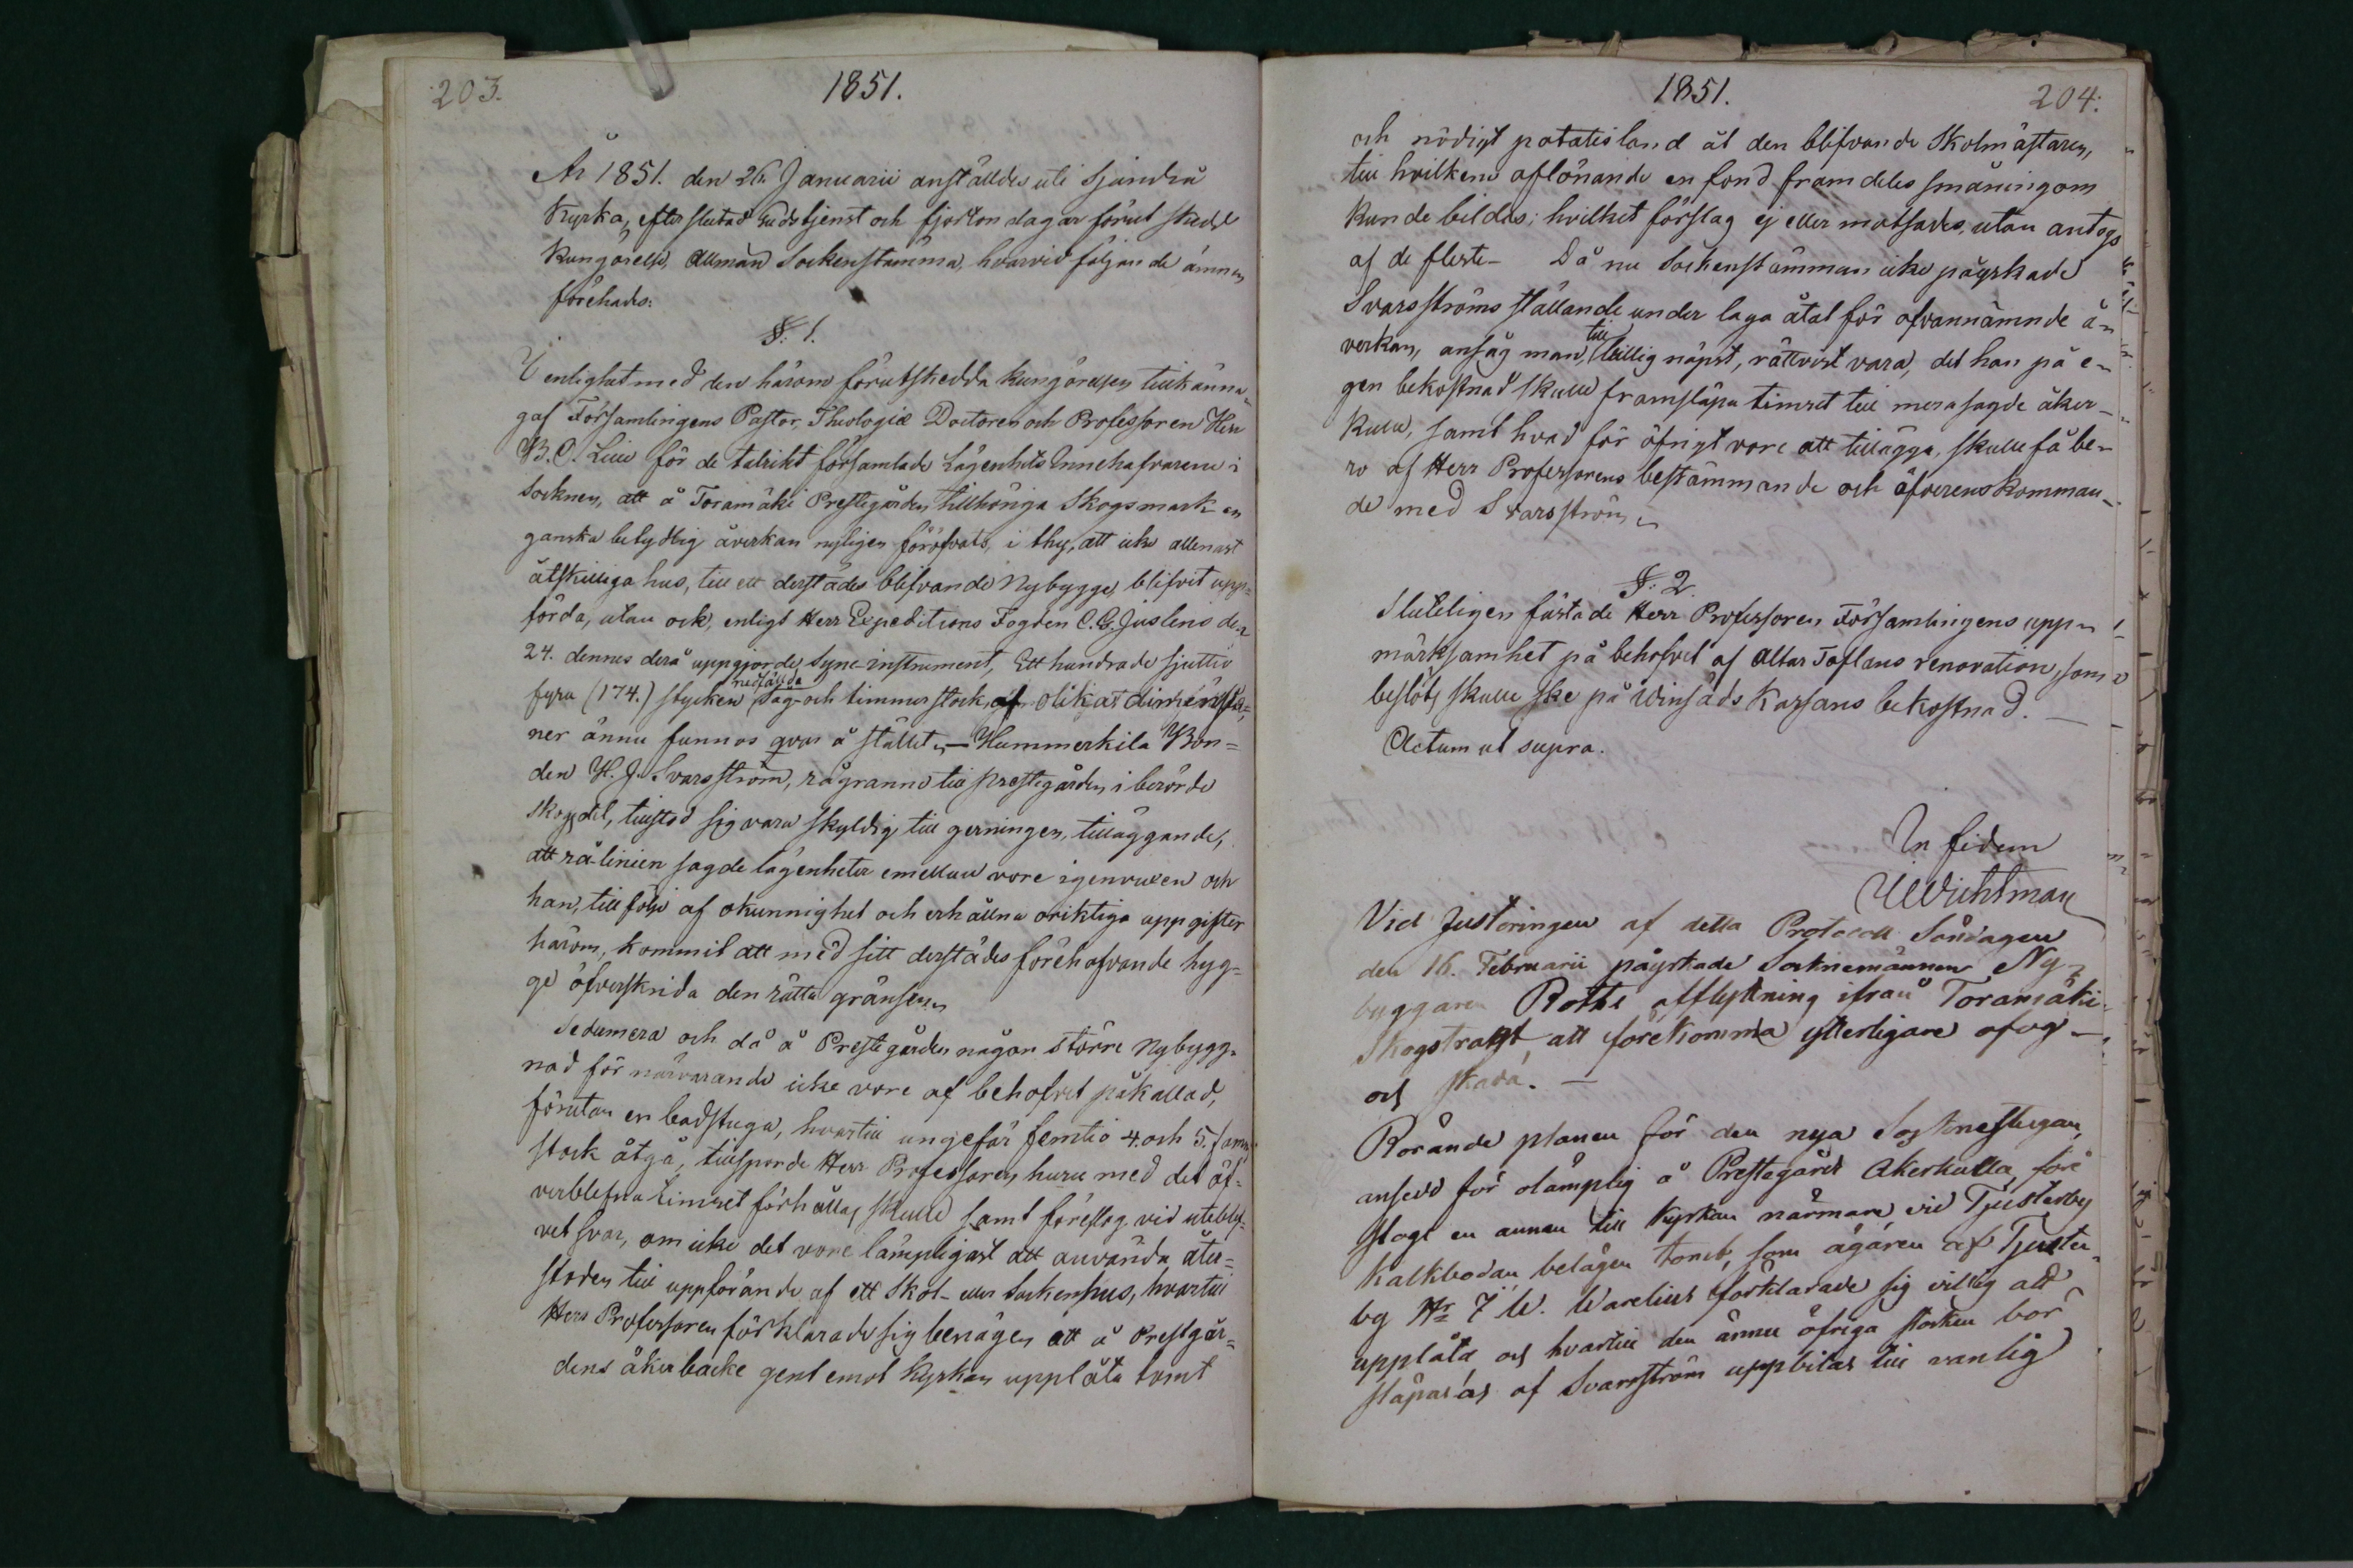 203.
1851.
År 1851. den 26. Januarii anställdes uti Sjundeå
Kyrka, efter slutad Gudstjenst och fjorton dagar förut skedd
kungörelse, Allmän Sockenstämma, hvarvid följande ämnen
förehades:
§. 1.
I enlighet med den härom förutskedda kungörelsen tillkänna-
gaf Församlingens Pastor, Theologiæ Doctoren och Professoren Herr
B. O. Lille för de talrikt församlade Lägenhets Innehafvarene i
Socknen, att å Toramäki Prestegården tillhöriga Skogsmark en
ganska betydlig åverkan nyligen föröfvats, i thy, att icke allenast
åtskilliga hus, till ett derstädes blifvande Nybygge, blifvit upp-
förda, utan ock, enligt Herr Expeditions Fogden C. G. Juslens den
24. dennes derå uppgjorde Syne-instrument, Ett hundrade sjuttio
fyra (174.) stycken nedfällda Såg- och timmerstock, af olika dimensio-
ner ännu funnos qvar å stället, — Hummerkila Bon=
den H. J. Svarsström, rågranne till prestegården i berörde
skogsdel, tillstod sig vara skyldig till gerningen, tilläggande,
att rålinien sagde lägenheter emellan vore igenvuxen och
han, till följe af okunnighet och erhållna oriktiga uppgifter
härom, kommit att med sitt derstädes förehafvande byg=
ge öfverskrida den rätta gränsen.
Sedermera och då å Prestegården någon större Nybygg-
nad för närvarande icke vore af behofvet påkallad,
förutan en badstuga, hvartill ungefär femtio 4. och 5. famns
stock åtgå, tillsporde Herr Professoren huru med det öf-
verblefna timret förhållas skulle samt föreslog vid uteblif-
vet svar, om icke det vore lämpligast att använda åter=
stoden till uppförande af ett Skol- eller Sockenhus, hvartill
Herr Professoren förklarade sig benägen att å Prestgår=
dens åkerbacke gent emot Kyrkan upplåta tomt
1851.
204.
och nödigt potatisland åt den blifvande Skolmästaren,
till hvilkens aflönande en fond framdeles småningom
kunde bildas; hvilket förslag ej eller motsades, utan antogs
af de fleste. Då nu Sockenstämman icke påyrkade
Svarsströms ställande under laga åtal för ofvannämnde å-
verkan, ansåg man, till billig näpst, rättvist vara, det han på e-
gen bekostnad skulle framsläpa timret till merasagde åker-
kulle, samt hvad för öfrigt vore att tillägga, skulle få be-
ro af Herr Professorens bestämmande och öfverenskomman-
de med Svarsström.
§. 2.
Slutligen fästade Herr Professoren Församlingens upp-
märksamhet på behofvet af Altar Taflans renovation, som
beslöts skulle ske på Winsäds Kassans bekostnad. —
Actum ut supra.
In fidem
Wichtman
Vid Justeringen af detta Protocoll Söndagen
den 16. Februarii påyrkade Socknemännen Ny-
byggaren Roths afflyttning ifrån Toramäki
Skogstrakt, att förekomma ytterligare ofog
och skada. —
Rörande planen för den nya Sockenestugan,
ansedd för olämplig å Prestegårds Åkerkulla, före
slogs en annan till Kyrkan närmare, vid Tjusterby
Kalkbodan belägen tomt, som ägaren af Tjuster-
by Nr 7 W. Warelius förklarade sig villig att
upplåta och hvartill den ännu öfriga stocken bör
släpas af Svarsström uppbilas till vanlig